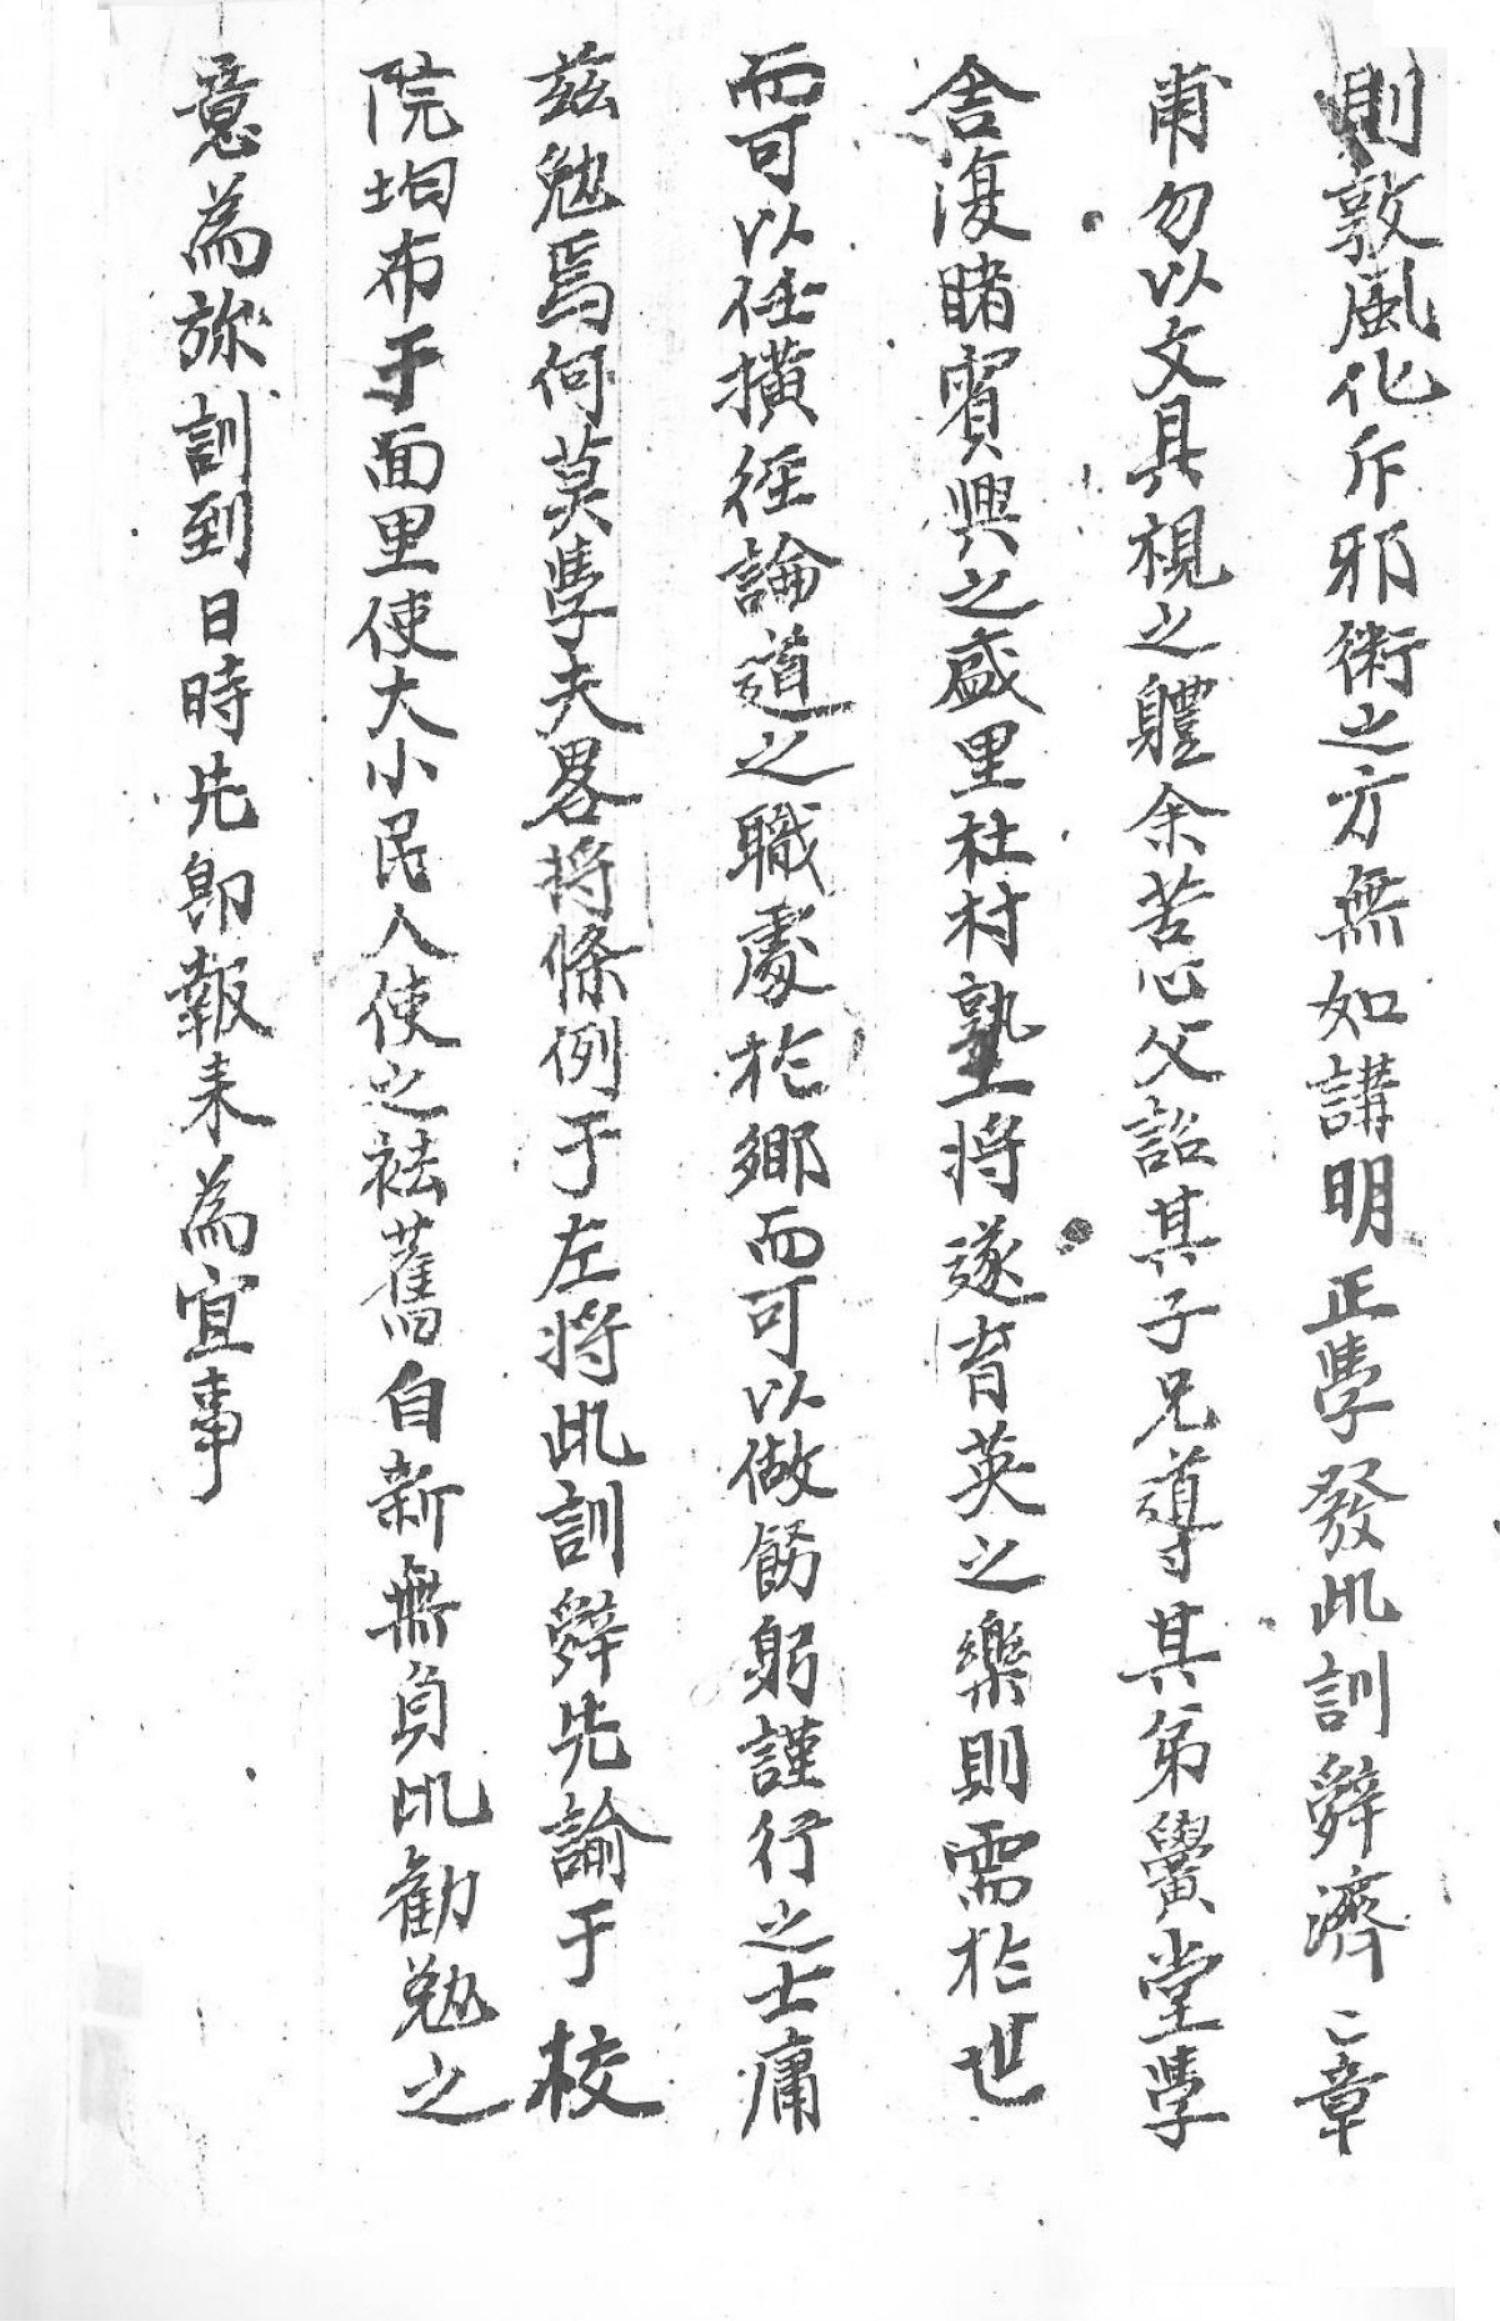 則敦風化斥邪術之方無如講明正學發此訓辭濟〻章
甫勿以文具視之軆余苦心父詔其子兄導其弟黌堂學
舍復睹賓興之盛里社村塾將遂育英之樂則需於世
而可以任橫經論道之職處於鄕而可以做飭躬謹行之士庸
玆勉焉何莫學夫畧將條例于左將此訓辭先諭于 校
院均布于面里使大小民人使之祛舊自新無負此勸勉之
意爲旀訓到日時先卽報來爲宜事